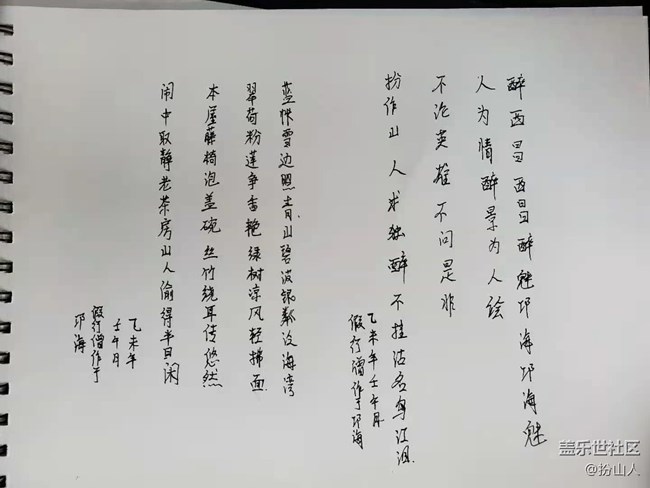 醉西昌西昌醉魅邛海邛海魅
人为情醉景为人绘
不论英雄不问是非
扮作山人求独醉不挂沽名乌江泪
乙未年壬午月
假行僧作于邛海
蓝怅雪边照青山碧波银瓢没海湾
翠荷粉莲争香艳绿树凉风轻拂面
本屋藤椅泡盖碗丝竹绕耳传悠然
闹中取静老茶房山人偷得半日闲
乙未年
壬午月
假行僧作于
邛海
盖乐世社区
@扮山人